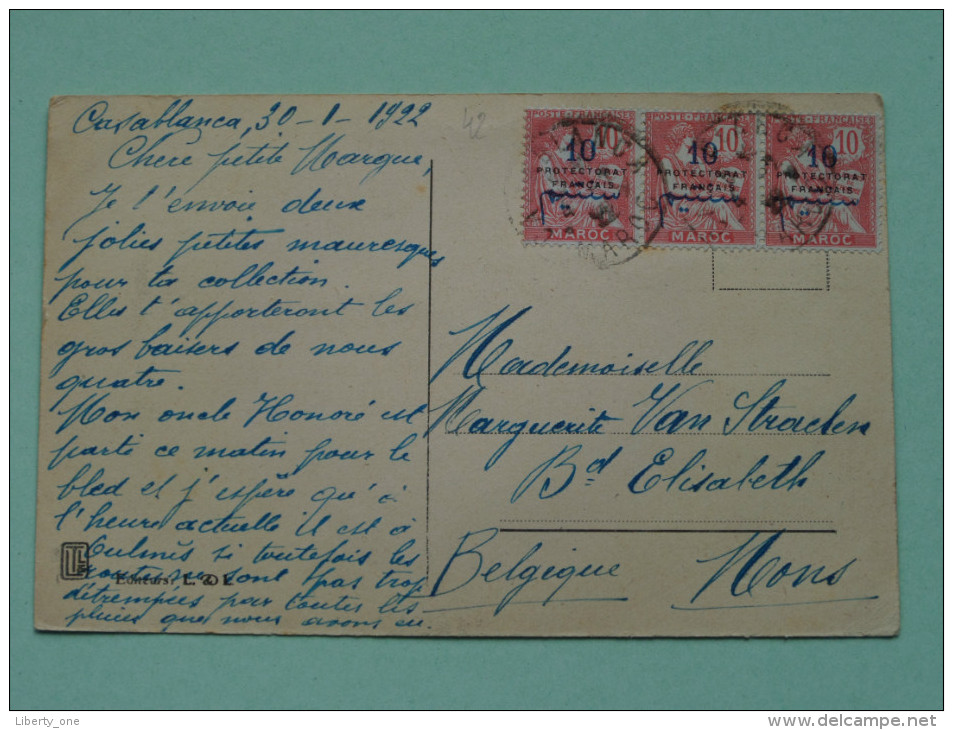 Casablanca, 30-1-1922
42
Chère petite Margue,
Je t'envoie deux
jolies petites mauresques
pour ta collection.
Elles t'apporteront les
gros baisers de nous
quatre.
Mon oncle Honoré est
parti ce matin pour le
bled et j'espère qu'à
l'heure actuelle il est à
Oulmès si toutefois les
routes ne sont pas trop
détrempées par toutes les
pluies que nous avons eu.
Editeurs: L & L
POSTE FRANÇAISE POSTE FRANÇAISE POSTE FRANÇAISE
10 10 10
10 10 10
PROTECTORAT PROTECTORAT PROTECTORAT
FRANÇAIS FRANÇAIS FRANÇAIS
MAROC MAROC MAROC
Mademoiselle
Marguerite Van Straelen
Bd Elisabeth
Belgique Mons
Liberty_one
http://www.delcampe.net